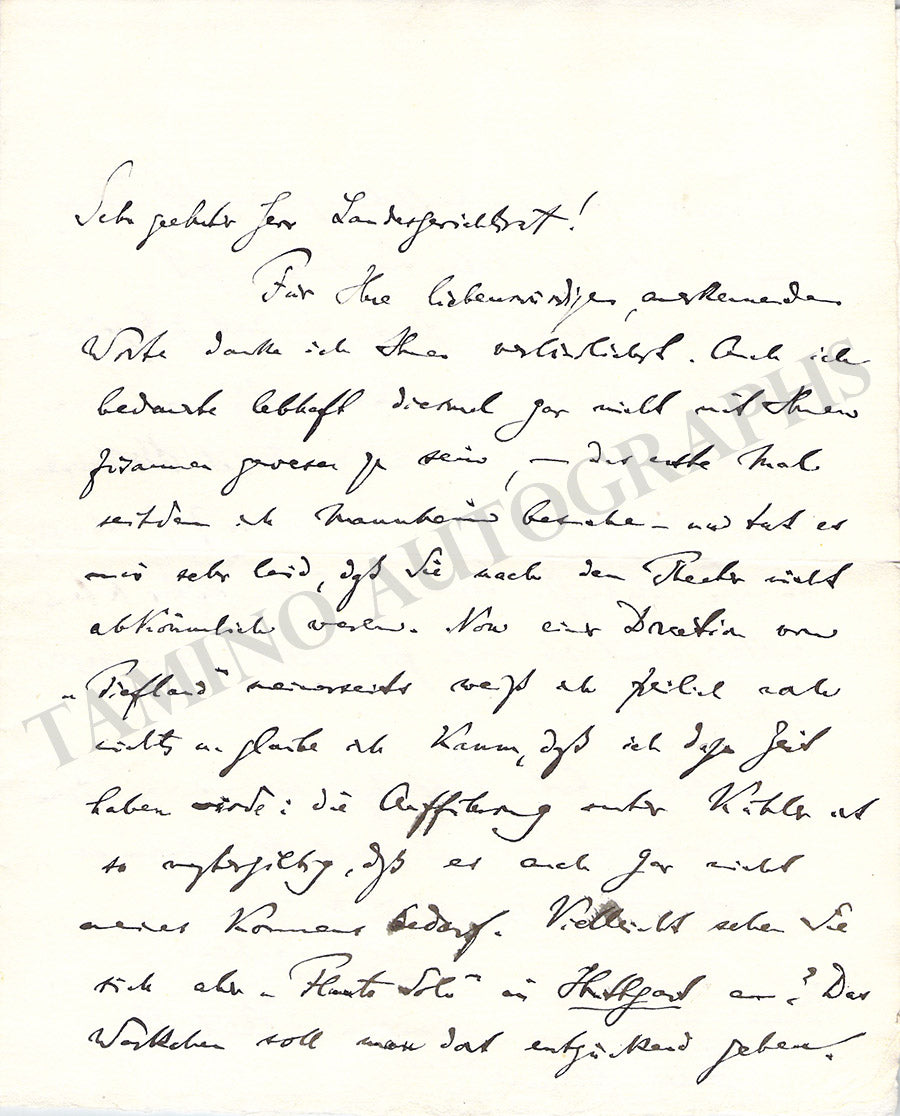 Sehr geehrter Herr Landesgerichtsrat!
Für Ihre liebenswürdigen, anerkennenden
Worte danke ich Ihnen verbindlichst. Auch ich
bedaurte lebhaft diesmal gar nicht mit Ihnen
zusammen gewesen zu sein, – das erste Mal
seitdem ich Mannheim besuche – und tat es
mir sehr leid, daß Sie nach dem Theater nicht
abkömmlich waren. Von einer Direction von
„Tiefland" meinerseits weiß ich freilich noch
nichts u. glaube ich kaum, daß ich dazu Zeit
haben würde: die Aufführung unter Kähler ist
so mustergiltig, daß es auch gar nicht
meines Kommens bedarf. Vielleicht sehen Sie
sich aber „Flauto Solo" in Stuttgart an? Das
Werkchen soll man dort entzückend geben.
TAMINO AUTOGRAPHS